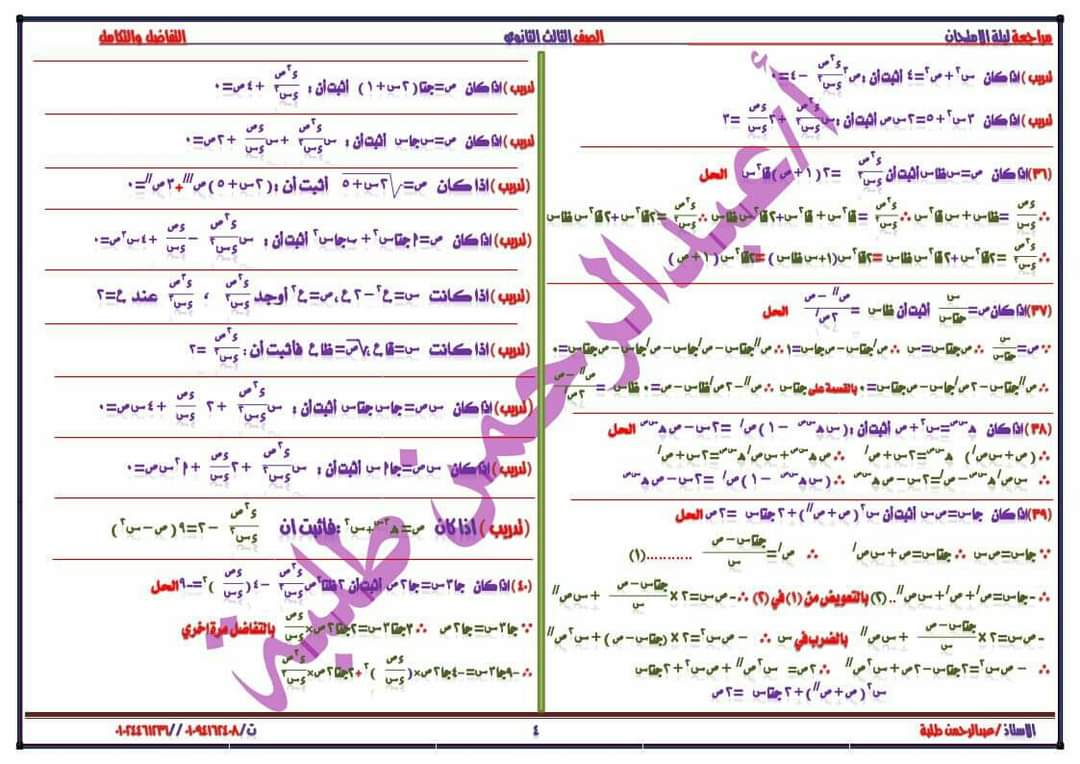 مراجعة ليلة الامتحان
الصف الثالث الثانوي
التفاضل والتكامل
تدريب) اذا كان س٢ + ص٢ =٤ أثبت أن : ص٣ ء٢ص/ءس٢ -٤ =٠
تدريب) اذا كان ٣س٢ +٥=٢س ص أثبت أن : س ء٢ص/ءس٢ +٢ ءص/ءس =٣
(٣٦)اذا كان ص=س ظاس أثبت أن ء٢ص/ءس٢ =٢(١+ص) قا٢س الحل
∴ ءص/ءس =ظاس + س قا٢س ∴ ء٢ص/ءس٢ = قا٢س + قا٢س +٢قا٢س س ظاس ∴ ء٢ص/ءس٢ =٢قا٢س +٢قا٢س س ظاس
∴ ء٢ص/ءس٢ =٢قا٢س +٢قا٢س س ظاس =٢قا٢س (١+س ظاس) =٢قا٢س (١+ص)
(٣٧)اذا كان ص= س/جتاس أثبت أن ظاس = ص// - ص/٢ص/ الحل
∵ ص= س/جتاس ∴ ص جتاس =س ∴ ص/جتاس - ص جاس =١ ∴ ص//جتاس - ص/جاس - ص/جاس - ص جتاس =٠
∴ ص//جتاس - ٢ص/جاس - ص جتاس =٠ بالقسمة على جتاس ∴ ص// - ٢ص/ظاس - ص =٠ ظاس = ص// - ص/٢ص/
(٣٨) اذا كان هـ^س ص =س٢ + ص أثبت أن : (س هـ^س ص - ١) ص/ =٢س - ص هـ^س ص الحل
∴ (ص + س ص/) هـ^س ص =٢س + ص/ ∴ ص هـ^س ص + س ص/ هـ^س ص =٢س + ص/
∴ س ص/ هـ^س ص - ص/ =٢س - ص هـ^س ص ∴ (س هـ^س ص - ١) ص/ =٢س - ص هـ^س ص
(٣٩)اذا كان جاس=س ص أثبت أن س٢(ص + ص//) +٢جتاس =٢ص الحل
∵ جاس=س ص ∴ جتاس=ص + س ص/ ∴ ص/= جتاس - ص/س ...........(١)
∴ - جاس=ص/ + ص/ + س ص// ..(٢) بالتعويض من (١) في (٢) ∴ - س ص=٢ × جتاس - ص/س + س ص//
- س ص=٢ × جتاس - ص/س + س ص// بالضرب في س ∴ - س٢ص=٢ × (جتاس - ص) + س٢ص//
∴ - س٢ص =٢جتاس -٢ص + س٢ص// ∴ ٢ص= س٢ص// + س٢ص +٢جتاس
س٢(ص + ص//) +٢جتاس =٢ص
تدريب) اذا كان ص=جتا(٢س+١) أثبت أن : ء٢ص/ءس٢ +٤ص=٠
تدريب) اذا كان ص=س جاس أثبت أن : س ء٢ص/ءس٢ + س ءص/ءس +٢ص=٠
(تدريب) اذا كان ص= √٢س+٥ أثبت أن : (٢س+٥) ص/// +٣ص// =٠
(تدريب) اذا كان ص=ا جتاس٢ + ب جاس٢ أثبت أن : س ء٢ص/ءس٢ - ءص/ءس +٤س٣ص=٠
(تدريب) اذا كانت س=ع٢ -٢ع ، ص=ع٣ أوجد ء٢ص/ءس٢ ، ء٣ص/ءس٣ عند ع=٢
(تدريب) اذا كانت س=قاع ، √ص=ظاع فأثبت أن : ء٢ص/ءس٢ =٢
(تدريب) اذا كان س ص=جاس جتاس أثبت أن : س ء٢ص/ءس٢ +٢ ءص/ءس +٤س ص=٠
(تدريب) اذا كان س ص=جا اس أثبت أن : س ء٢ص/ءس٢ +٢ ءص/ءس + ا٢س ص=٠
(تدريب ) اذا كان ص=هـ^٣س + س٢ :فاثبت ان ء٢ص/ءس٢ -٢=٩(ص - س٢)
(٤٠) اذا كان جا٣س=جا٢ص أثبت أن ٢ظتا٢ص ء٢ص/ءس٢ -٤( ءص/ءس )٢=-٩ الحل
∵ جا٣س=جا٢ص ∴ ٣جتا٣س=٢جتا٢ص× ءص/ءس بالتفاضل مرة اخري
∴ -٩جا٣س=-٤جا٢ص×( ءص/ءس )٢+٢جتا٢ص× ء٢ص/ءس٢
أ/عبدالرحمن طلبة
الاستاذ /عبدالرحمن طلبة
٤
ت/٠١٠٩٤١٦٢٤٠٨ // ٠١٠٢٤٤٦١٢٣٦